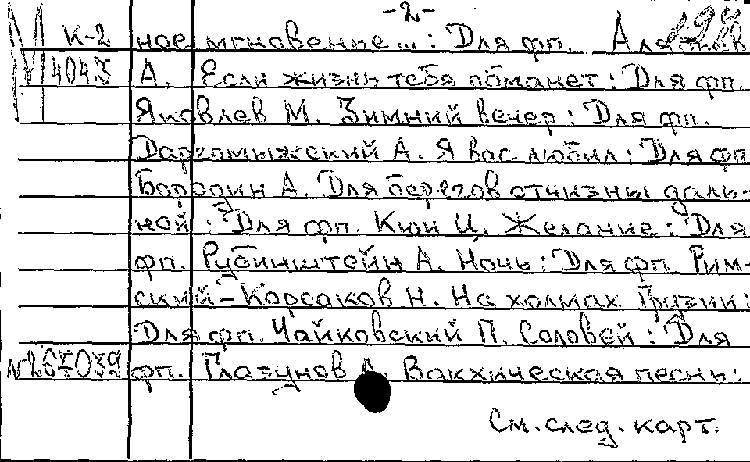 -2-
К-2 ное мгновенье...: Для фп. Алябьев
4043 А. Если жизнь тебя обманет: Для фп.
Яковлев М. Зимний вечер: Для фп.
Даргомыжский А. Я вас любил: Для фп
Бородин А. Для берегов отчизны даль-
ной: Для фп. Кюи Ц. Желание: Для
фп. Рубинштейн А. Ночь: Для фп. Рим-
ский-Корсаков Н. На холмах Грузии:
Для фп. Чайковский П. Соловей: Для
№267039 фп. Глазунов А. Вакхическая песнь:
См. след. карт.